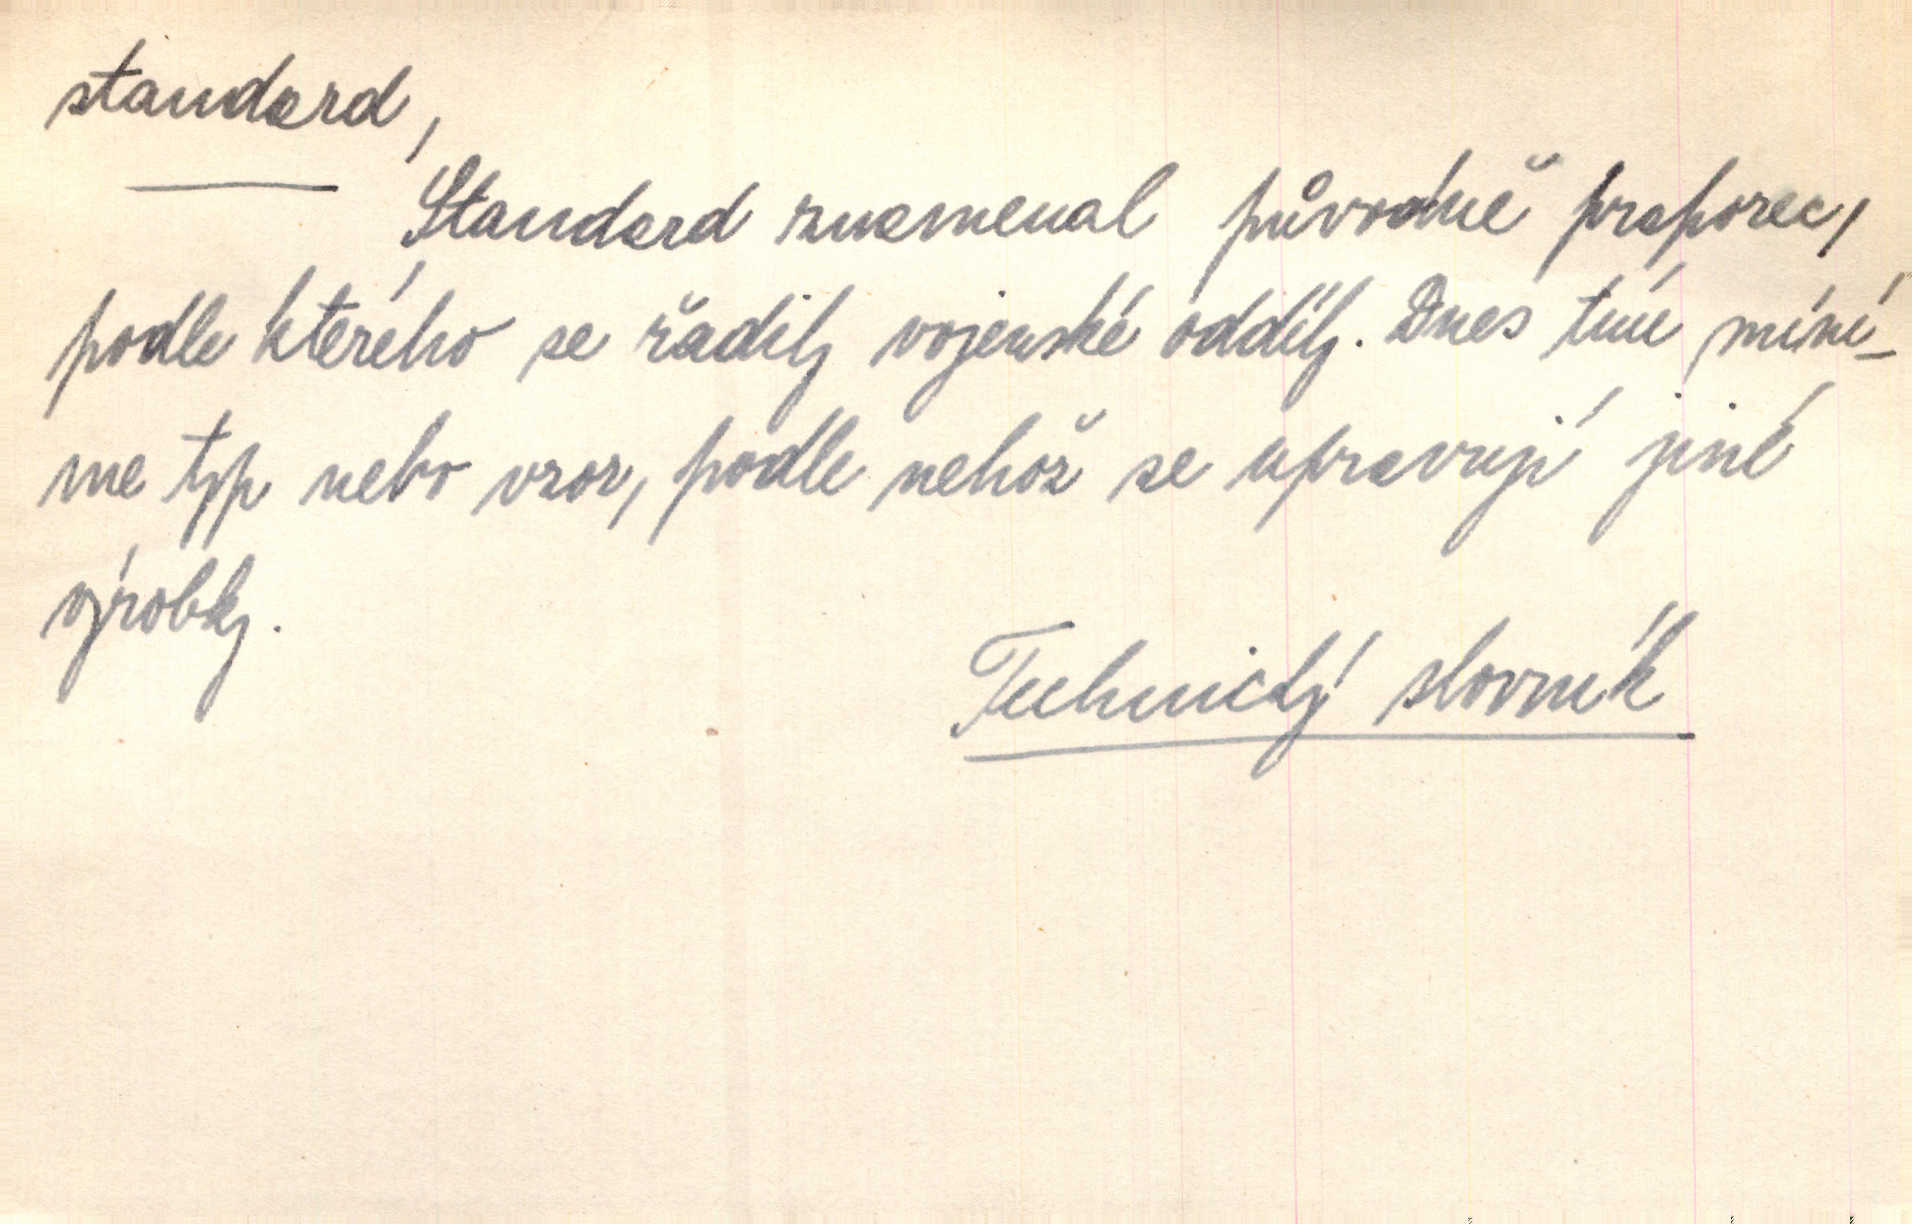 standard,
Standard znamenal původně praporec,
podle kterého se řadily vojenské oddíly. Dnes tím míní-
me typ nebo vzor, podle nehož se upravují jiné
výrobky.
Technický slovník